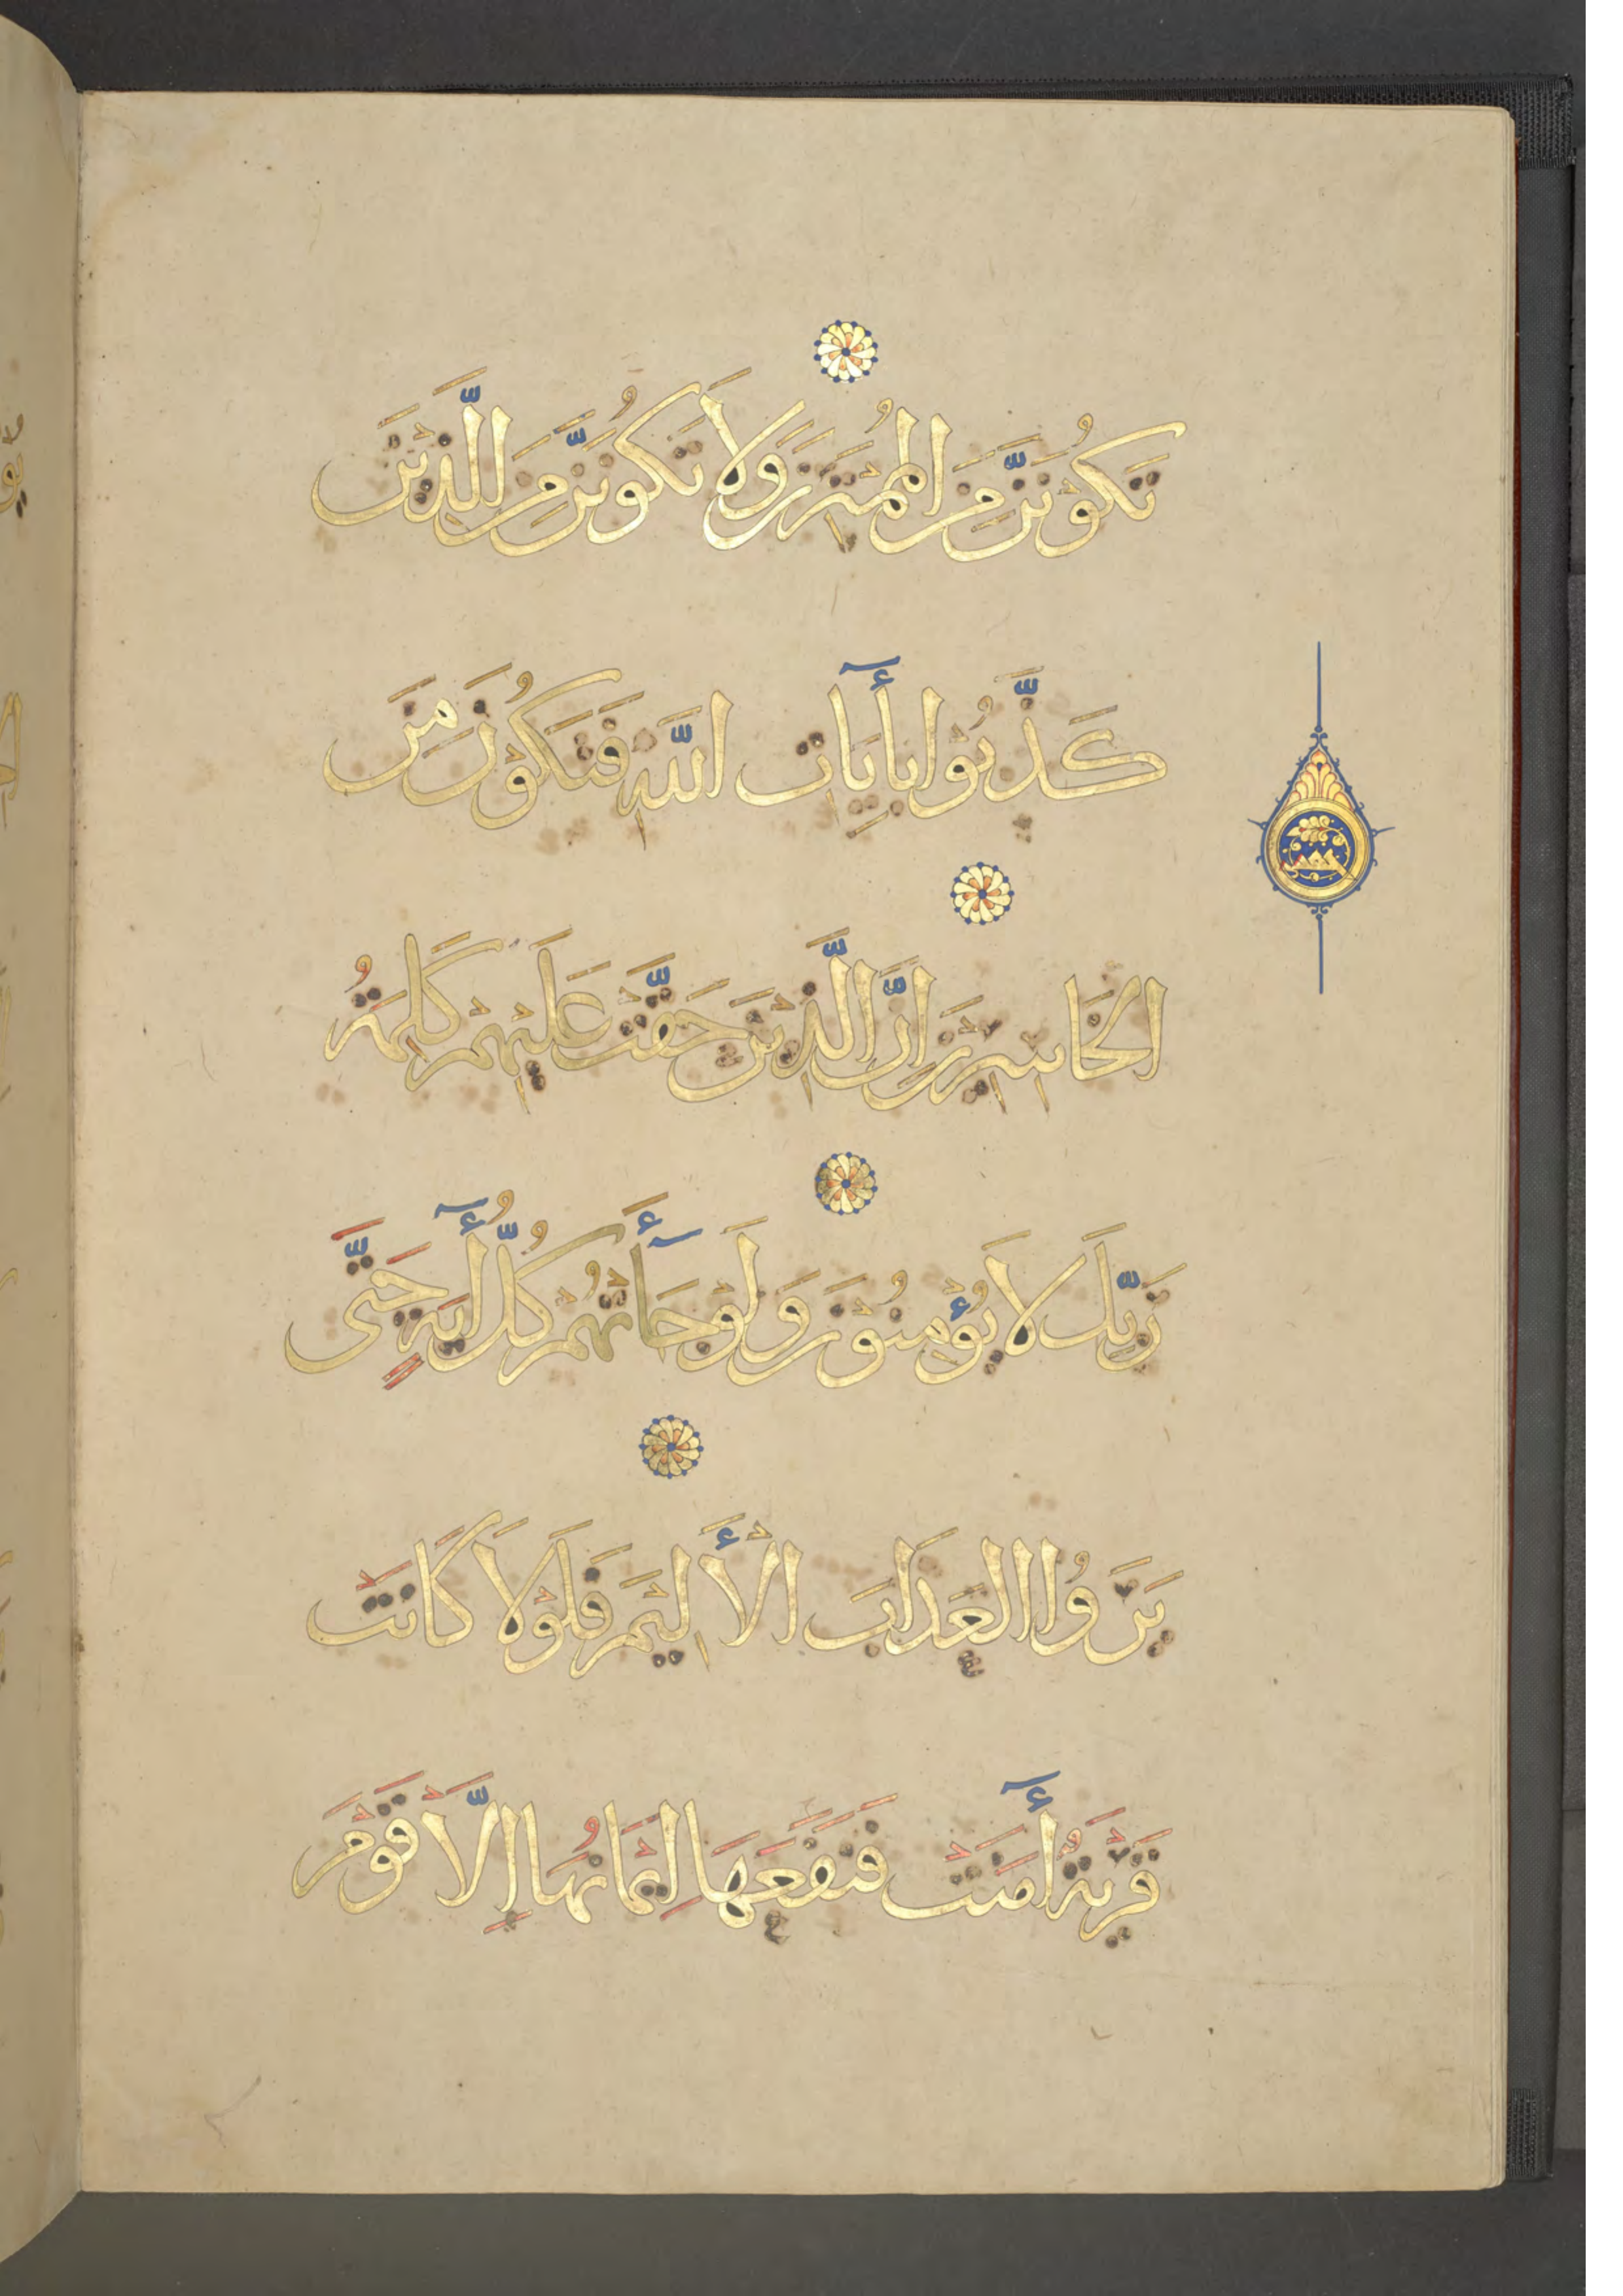 تَكُوْنَنَّ مِنَ المُمْتَرِيْنَ وَلَا تَكُوْنَنَّ مِنَ الَّذِيْنَ
كَذَّبُوْا بِأٓيَاتِ اللَّهِ فَتَكُوْنَ مِنَ
الخَاسِرِيْنَ اِنَّ الَّذِيْنَ حَقَّتْ عَلَيْهِمْ كَلِمَةُ
رَبِّكَ لَا يُؤْمِنُوْنَ وَلَوْ جَآَٔتْهُمْ كُلُّ أٓيَةٍ حَتَّى
يَرَوُا العَذَابَ الْأَلِيْمَ فَلَوْلَا كَانَتْ
قَرْيَةٌ أٓمَنَتْ فَنَفَعَهَا اِيْمَانُهَا اِلَّا قَوْمَ